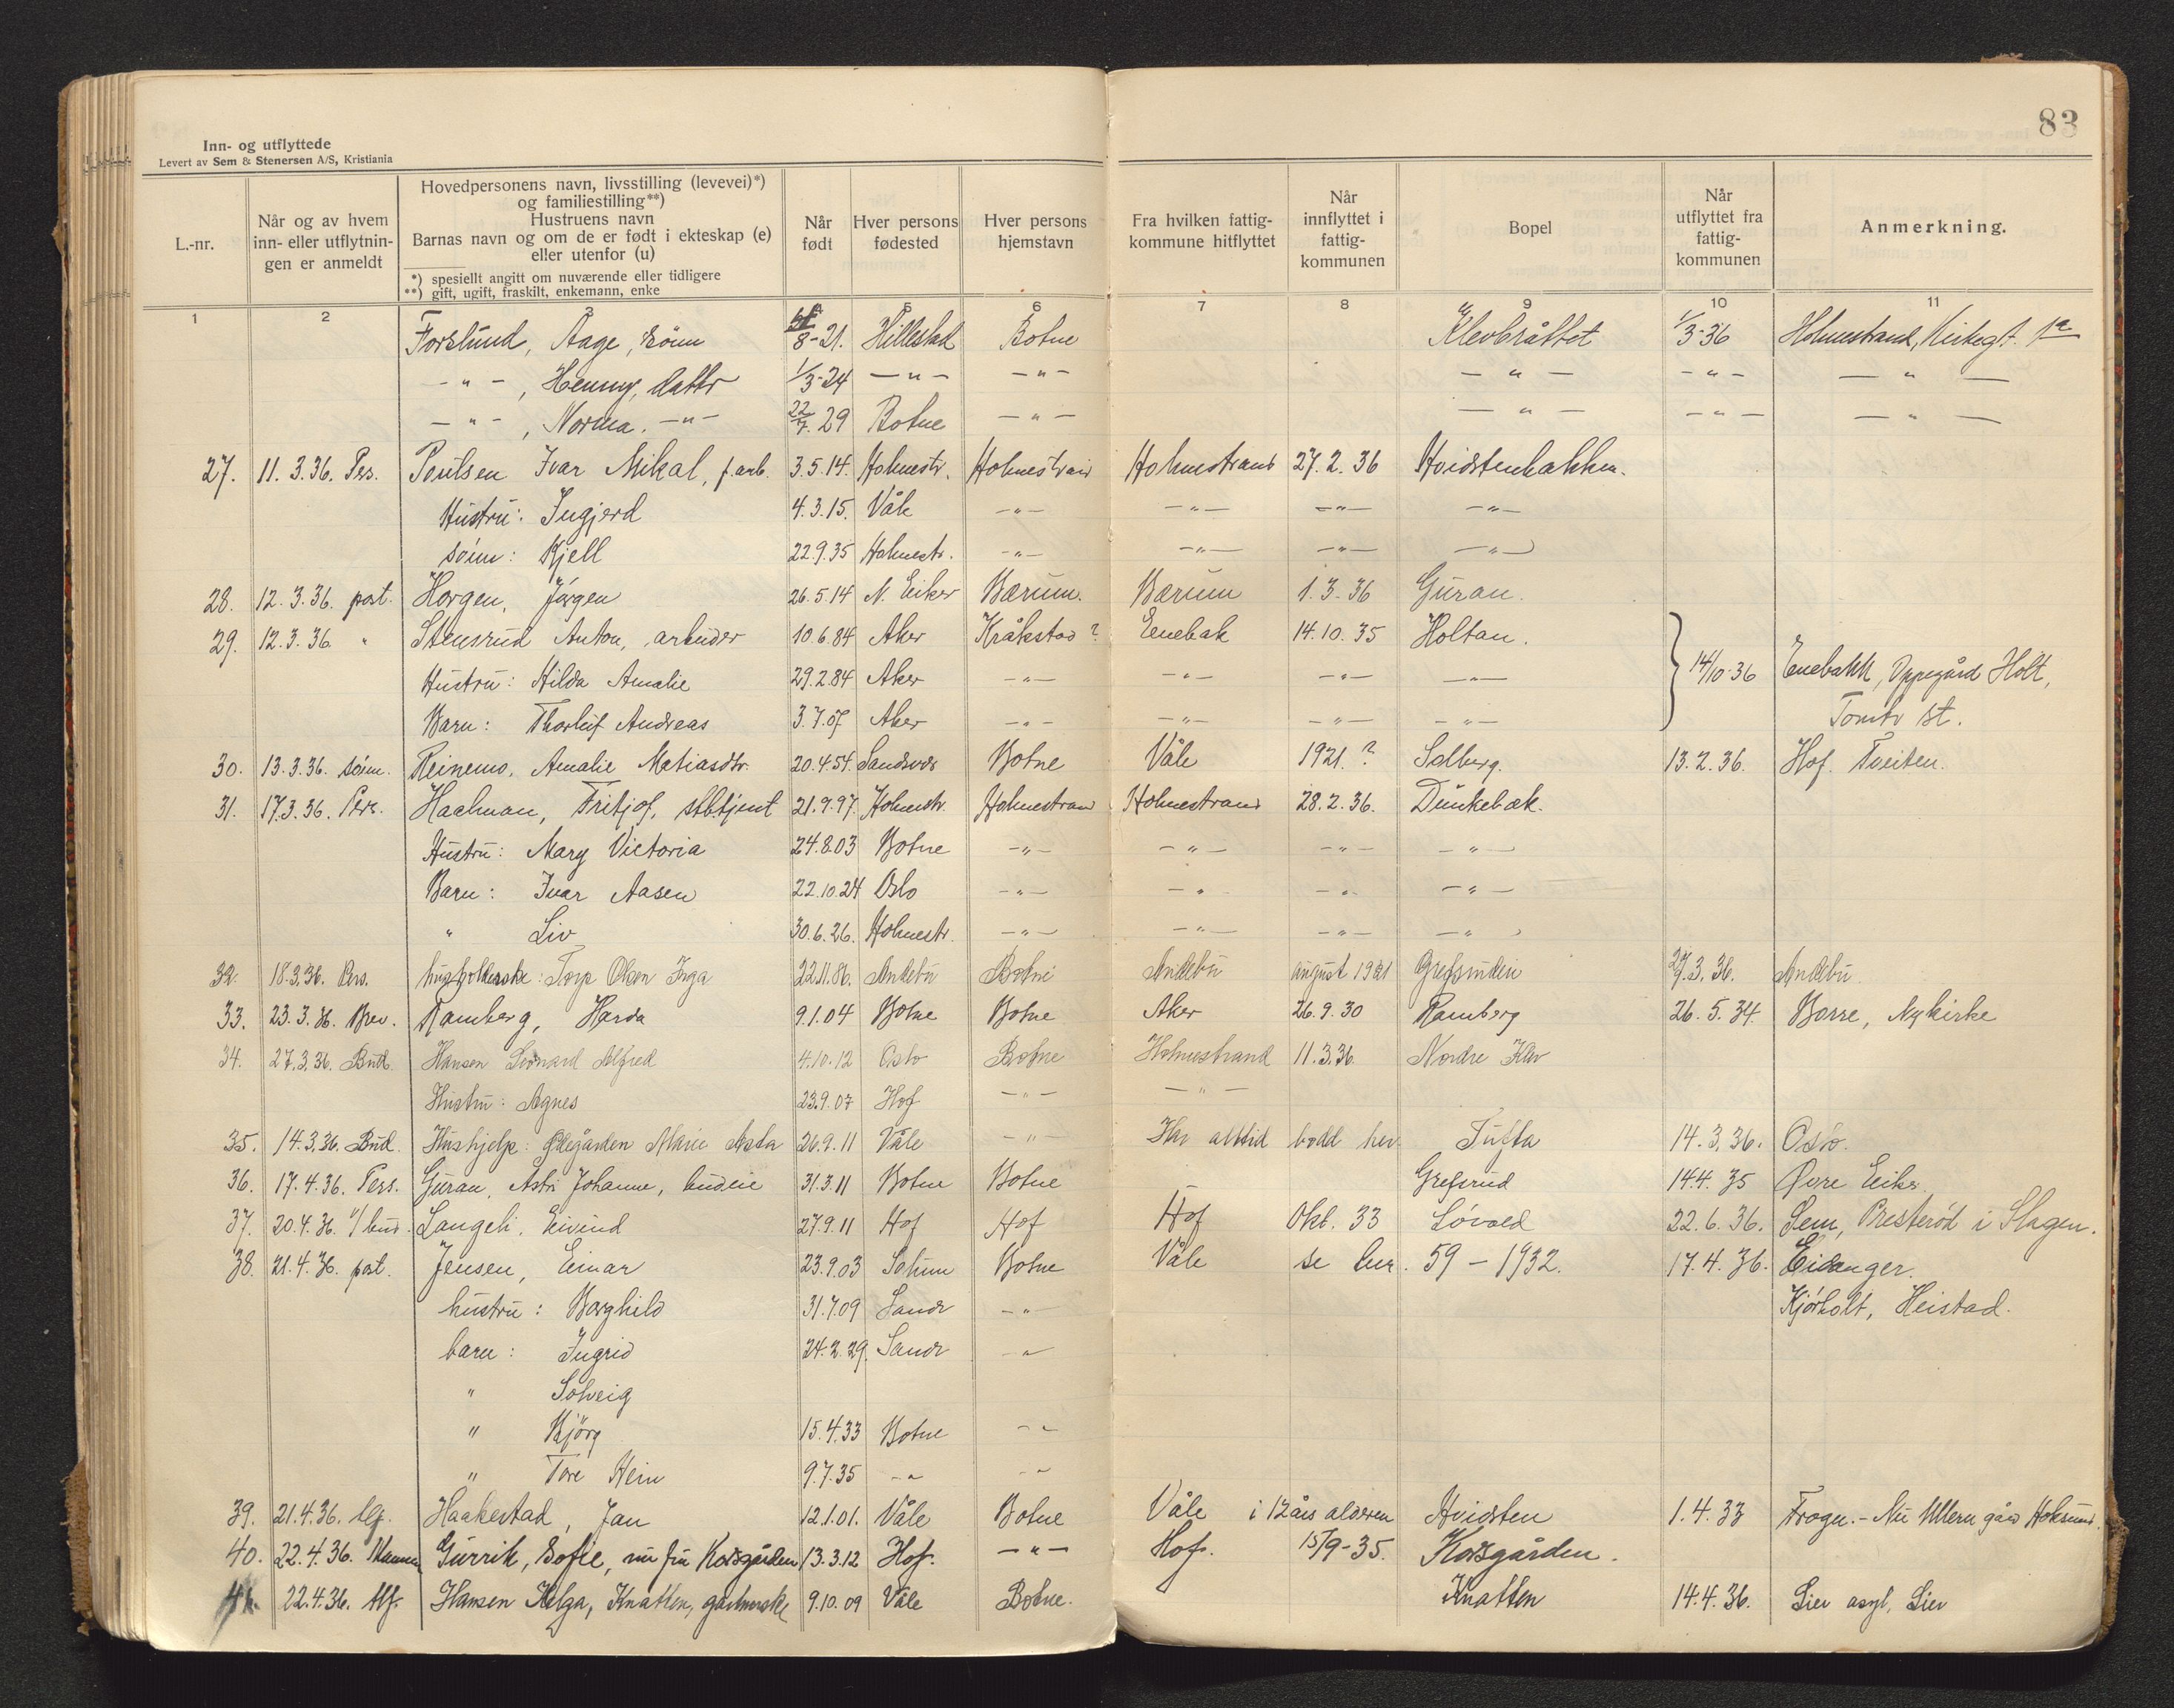 83
Inn- og utflyttede
Levert av Sem & Stenersen A/S, Kristiania
L.-nr.
Når og av hvem inn- eller utflytnin-gen er anmeldt
Hovedpersonens navn, livsstilling (levevei)*)
og familiestilling**)
Hustruens navn
Barnas navn og om de er født i ekteskap (e)
eller utenfor (u)
*) spesiellt angitt om nuværende eller tidligere
**) gift, ugift, fraskilt, enkemann, enke
Når født
Hver persons fødested
Hver persons hjemstavn
Fra hvilken fattig-kommune hitflyttet
Når innflyttet i fattig-kommunen
Bopel
Når utflyttet fra fattig-kommunen
Anmerkning.
1 2 3 5 6 7 8 9 10 11
Forslund, Aage, sønn 8-21. Hillestad Botne Klevbråttet 1/3-36 Holmestrand, Kirkegt.
-"-, Henny, dattr 1/3-24 -"- -"- -"- -"- -"-
-"-, Norma. -"- 22/7.29 Botne -"- -"- -"- -"-
27. 11.3.36. Pers. Poulsen Ivar Mikal, f.arb. 3.5.14. Holmestr. Holmestrand Holmestrand 27.2.36 Hvidstenbakken.
Hustru: Ingjerd 4.3.15. Våle -"- -"- -"- -"-
sönn: Kjell 22.9.35 Holmestr. -"- -"- -"- -"-
28. 12.3.36. post. Horgen, Jörgen 26.5.14 N. Eiker Bærum. Bærum 1.3.36 Guran.
29. 12.3.36. " Stensrud Anton, arbeider 10.6.84 Aker Kråkstad? Enebak 14.10.35 Holtan.
Hustru: Hilda Amalie 29.2.84 Aker -"- -"- -"- -"- 14/10-36 Enebakk, Oppegård Holt,
Barn: Thorleif Andreas 3.7.07 Aker -"- -"- -"- -"- Tomter st.
30. 13.3.36. sönn. Reinemo, Amalie Matiasdtr. 20.4.54. Sandsvær Botne Våle 1921.? Solberg. 13.2.36. Hof. Tveiten.
31. 17.3.36. Pers. Haalman, Fritjof, 21.9.97. Holmestr. Holmestrand Holmestrand 28.2.36. Dunkebæk.
Hustru: Mary Victoria 24.8.03 Botne -"- -"- -"- -"-
Barn: Ivar Aasen 22.10.24 Oslo -"- -"- -"- -"-
" Liv 30.6.26. Holmestr. -"- -"- -"- -"-
32. 18.3.36. Pers. husholderske: Torp Olsen Inga 22.11.86. Andebu Botne Andebu august 1921 Grefsrudeie .3.36. Andebu
33. 23.3.36. Brev. Ramberg, Harda 9.1.04 Botne Botne Aker 26.9.30 Ramberg 26.5.34. Borre, Nykirke
34. 27.3.36. Bud. Hansen Leonard Alfred 4.10.12 Oslo Botne Holmestrand 11.3.36. Nordre Klev
Hustru: Agnes 23.9.07 Hof -"- -"-
35. 14.3.36. Bud. Hushjelp: Ødegården Marie Asta 26.9.11 Våle -"- Har alltid bodd her. Tufta 14.3.36. Oslo.
36. 17.4.36. Pers. Guran, Astri Johanne, budeie 31.3.11 Botne Botne Grefsrud 14.4.35 Øvre Eiker.
37. 20.4.36. v/bud. Langeli, Eivind 27.9.11 Hof Hof Hof Okt. 33 Lövold 22.6.36. Sem, Presterød i Slagen.
38. 21.4.36. post. Jensen, Einar 23.9.03 Solum Botne Våle se lnr. 59 - 1932. 17.4.36. Eidanger.
hustru: Borghild 31.7.09 Sandr -"- Kjörholt, Heistad.
barn: Ingrid 24.2.29. Sandr -"-
" Solveig
" Bjørg 15.4.33 Botne -"-
" Tore Hein 9.7.35 -"- -"-
39. 21.4.36. Haakestad, Jan 12.1.01. Våle Botne Våle i 12 års alderen Hvidsten 1.4.33 Frogn. - Nu Ullern gård Hoksund.
40. 22.4.36. Mannen Gurrik, Sofie, nu fru Korsgården 13.3.12 Hof. -"- Hof. 15/9-35. Korsgården.
41. 22.4.36. Hansen Helga, Knatten, 9.10.09 Våle Botne. Knatten 14.4.36. Lier asyl, Lier